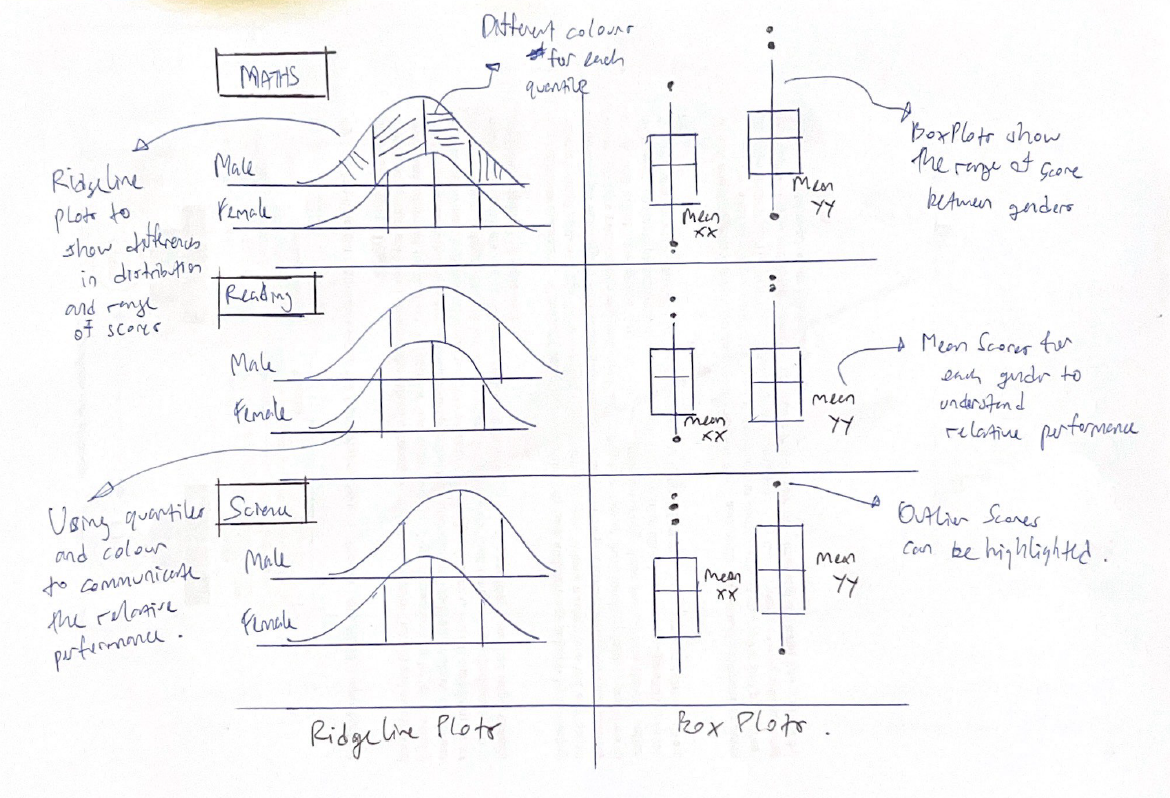 MATHS
Different colours
for each
quantile
Ridgeline
plots to
show differences
in distribution
and range
of scores
Male
Female
Mean
XX
Mean
YY
BoxPlots show
the range of score
between genders
Reading
Male
Female
Mean
XX
Mean
YY
Mean Scores for
each gender to
understand
relative performance
Using quantiles
and colour
to communicate
the relative
performance.
Science
Male
Female
Mean
XX
Mean
YY
Outlier Scores
can be highlighted.
Ridgeline Plots
Box Plots.